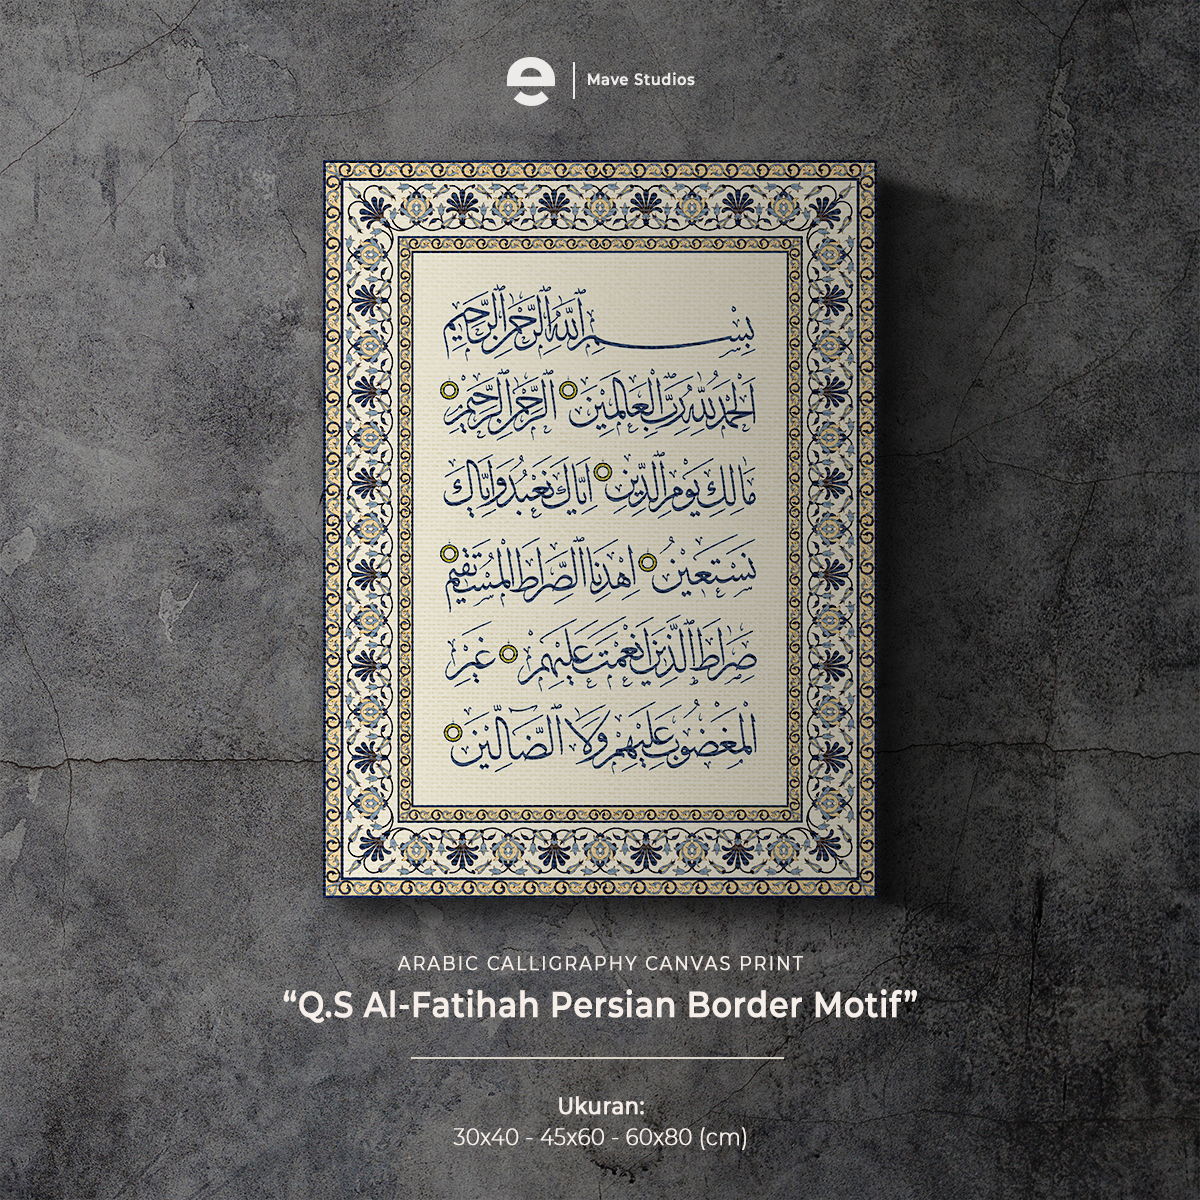 Mave Studios
بِسْمِ ٱللَّهِ ٱلرَّحْمَٰنِ ٱلرَّحِيمِ
اَلْحَمْدُ لِلَّهِ رَبِّ الْعَالَمِينَ الرَّحْمَٰنِ الرَّحِيمِ
مَالِكِ يَوْمِ الدِّينِ اِيَّاكَ نَعْبُدُ وَاِيَّاكَ
نَسْتَعِينُ اِهْدِنَا الصِّرَاطَ الْمُسْتَقِيمَ
صِرَاطَ الَّذِينَ اَنْعَمْتَ عَلَيْهِمْ غَيْرِ
الْمَغْضُوبِ عَلَيْهِمْ وَلَا الضَّالِّينَ
ARABIC CALLIGRAPHY CANVAS PRINT
“Q.S Al-Fatihah Persian Border Motif”
Ukuran:
30x40 - 45x60 - 60x80 (cm)